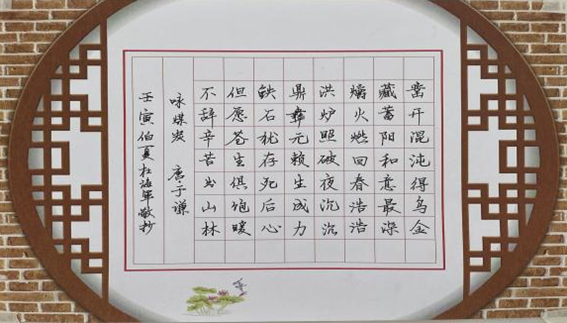 凿开混沌得乌金
藏蓄阳和意最深
爝火燃回春浩浩
洪炉照破夜沉沉
鼎彝元赖生成力
铁石犹存死后心
但愿苍生俱饱暖
不辞辛苦出山林
咏煤炭 唐于谦
壬寅伯夏杜军敬抄